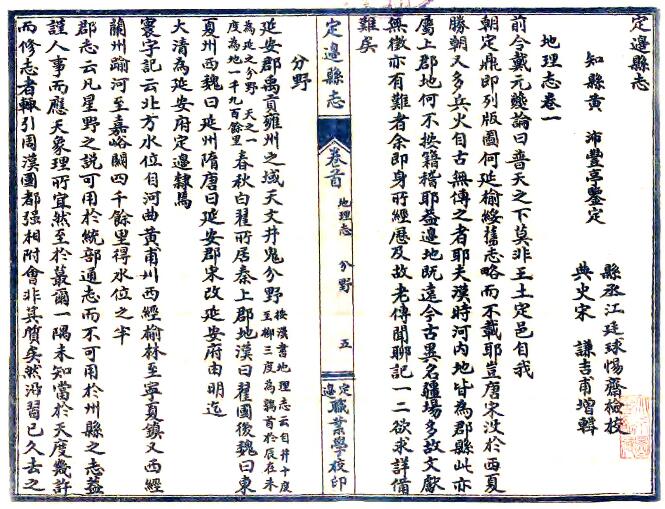 定邊縣志
知縣黃　沛豐亭鑒定
縣丞江廷球惕齋檢校
典史宋　謙吉甫增輯
地理志卷一
前令戴元夔論曰普天之下莫非王土定邑自我
朝定鼎即列版圖何延榆綏舊志略而不載耶豈唐宋沒於西夏
勝朝又多兵火自古無傳之者耶夫漢時河內地皆為郡縣此亦
屬上郡地何不按籍稽耶蓋邊地既遠今古異名疆場多故文獻
無徵亦有難者余即身所經歷及故老傳聞聊記一二欲求詳備
難矣
定邊縣志
卷首
地理志　分野　五
定邊職業學校印
分野
延安郡禹貢雍州之域天文井鬼分野按漢書地理志云自井十度至柳三度為鶉首於辰在未
為延之分野天之一度為地一千九百餘里春秋白翟所居秦上郡地漢曰翟國後魏曰東
夏州西魏曰延州隋唐曰延安郡宋改延安府由明迄
大清為延安府定邊隸焉
寰宇記云北方水位自河曲黃甫川西經榆林至寧夏鎮又西經
蘭州踰河至嘉峪關四千餘里得水位之半
郡志云凡星野之說可用於統部通志而不可用於州縣之志蓋
謹人事而應天象理所宜然至於蕞爾一隅未知當於天度幾許
而修志者輒引周漢國都强相附會非其質矣然沿習已久去之